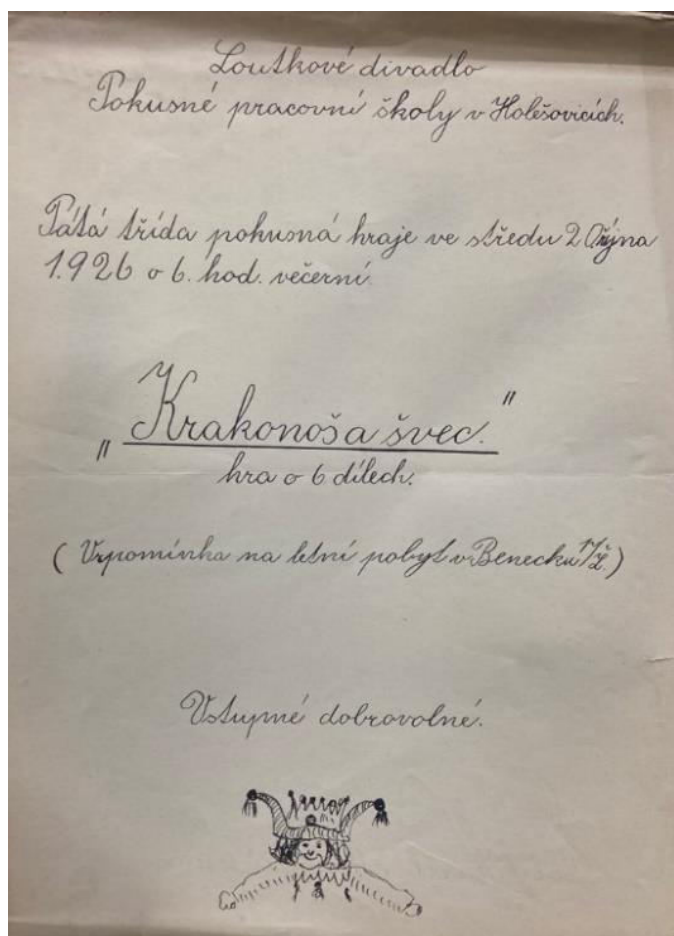 Loutkové divadlo
Pokusné pracovní školy v Holešovicích.
Pátá třída pokusná hraje ve středu 20 října
1.926 o 6. hod. večerní.
„Krakonoš a švec."
hra o 6 dílech.
(Vzpomínka na letní pobyt v Benecku
Vstupné dobrovolné.